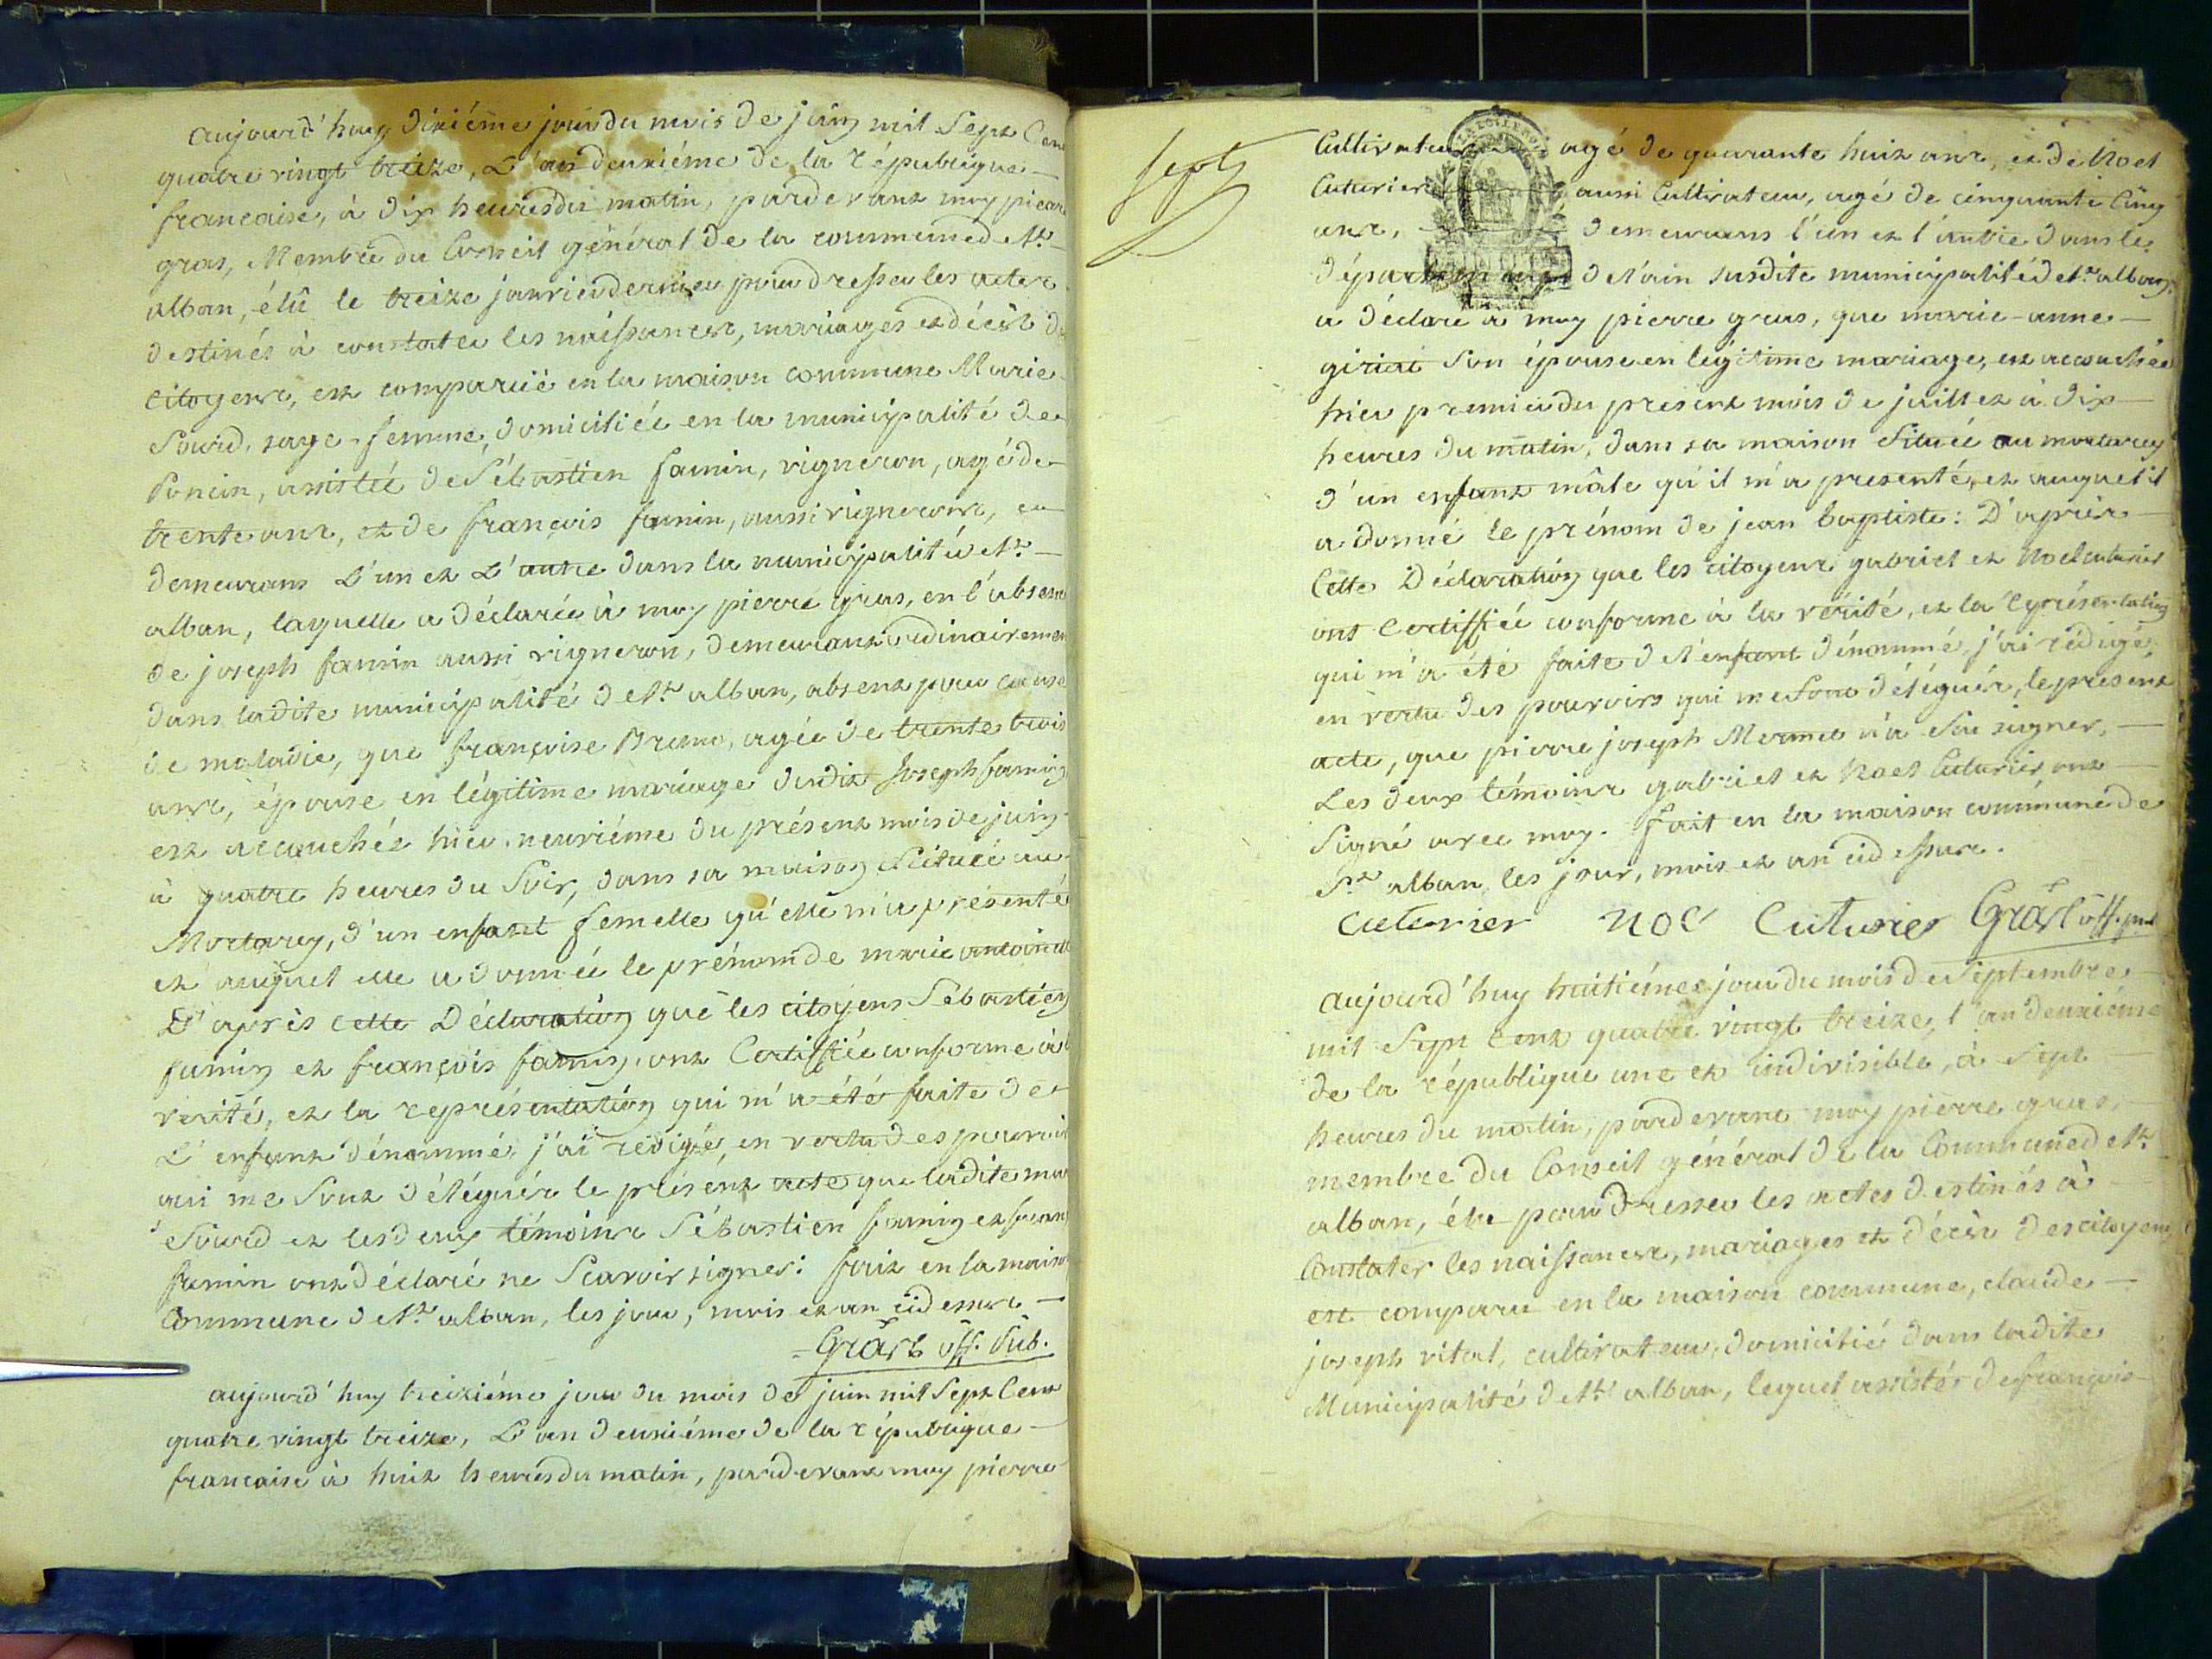 aujourd'huy dixiéme jour du mois de juin mil sept Cen
quatre vingt treize, L'an deuxiéme de la république
francaise, à dix heures du matin, pardevant moy pierre
gras, Membre du Conseil général de la commune de St.
alban, élû le treize janvier dernier pour dresser les actes
destinés à constater les naissances, mariages et décès des
citoyens, est comparüe en la maison commune Marie
Sourd, sage-femme, domiciliée en la municipalité de
Poncin, assistée de Sébastien famin, vigneron, agé de
trente ans, et de françois famin, aussi vigneron,
demeurans L'un et L'autre dans la municipalité St.
alban, laquelle a déclarée à moy pierre gras, en l'absence
de joseph famin aussi vigneron, demeurant ordinairement
dans ladite municipalité de St. alban, absent pour cause
de maladie, que françoise Bruno, agée de trente trois
ans, épouse en légitime mariage dudit Joseph famin
est accouchée hier neuviéme du présent mois de juin
à quatre heures du soir, dans sa maison scituée au
Mortarey, d'un enfant femelle qu'elle m'a présenté
et auquel elle a donnée le prénom de marie antoinette
D'après cette Déclaration que les citoyens Sébastien
famin et françois famin ont Certiffiée conforme à la
verité, et la représentation qui m'a été faite de
L'enfant dénommé, j'ai redigé, en vertu des pouvoirs
qui me sont délégués le présent acte que ladite marie
Sourd et les deux témoins Sébastien famin et françois
famin ont déclaré ne Scavoir signer: fait en la maison
Commune de St. alban, les jour, mois et an cidessus
Gras off. Pub.
aujourd'huy treiziéme jour du mois de juin mil Sept Cent
quatre vingt treize, L'an deuxiéme de la république
francaise à huit heures du matin, pardevant moy pierre
sept
Cultivateur agé de quarante huit ans, et de Noel
Cuturier aussi Cultivateur, agé de cinquante Cinq
ans, demeurans l'un et l'autre dans le
département de l'ain susdite municipalité de St. alban
a déclaré à moy pierre gras, que marie-anne
giriat son épouse en légitime mariage, est accouchée
hier premier du present mois de juillet à dix
heures du matin, dans sa maison située au mortarey
d'un enfant mâle qu'il m'a presenté, et auquel il
a donné le prénom de jean baptiste: D'après
Cette Déclaration que les citoyens gabriel et Noel cuturier
ont Certiffiée conforme à la vérité, et la représentation
qui m'a été faite de l'enfant dénommé, j'ai rédigé,
en vertu des pouvoirs qui me sont délégués, le present
acte, que pierre joseph Mermet n'a sçu signer,
Les deux témoins gabriel et Noel Cuturier ont
Signé avec moy. fait en la maison commune de
St. alban, les jour, mois et an cidessus.
Cuturier noel Cuturier Gras off. pub
aujourd'huy huitiémee jour du mois de Septembre
mil Sept Cent quatre vingt treize, l'an deuxiéme
de la république une et indivisible, à Sept
heures du matin, pardevant moy pierre gras,
membre du Conseil général de la Commune de St.
alban, élu pour dresser les actes destinés à
Constater les naissances, mariages et décès des citoyens
est comparu en la maison commune, claude
joseph vital, cultivateur, domicilié dans ladite
Municipalité de St. alban, lequel assistér de françois